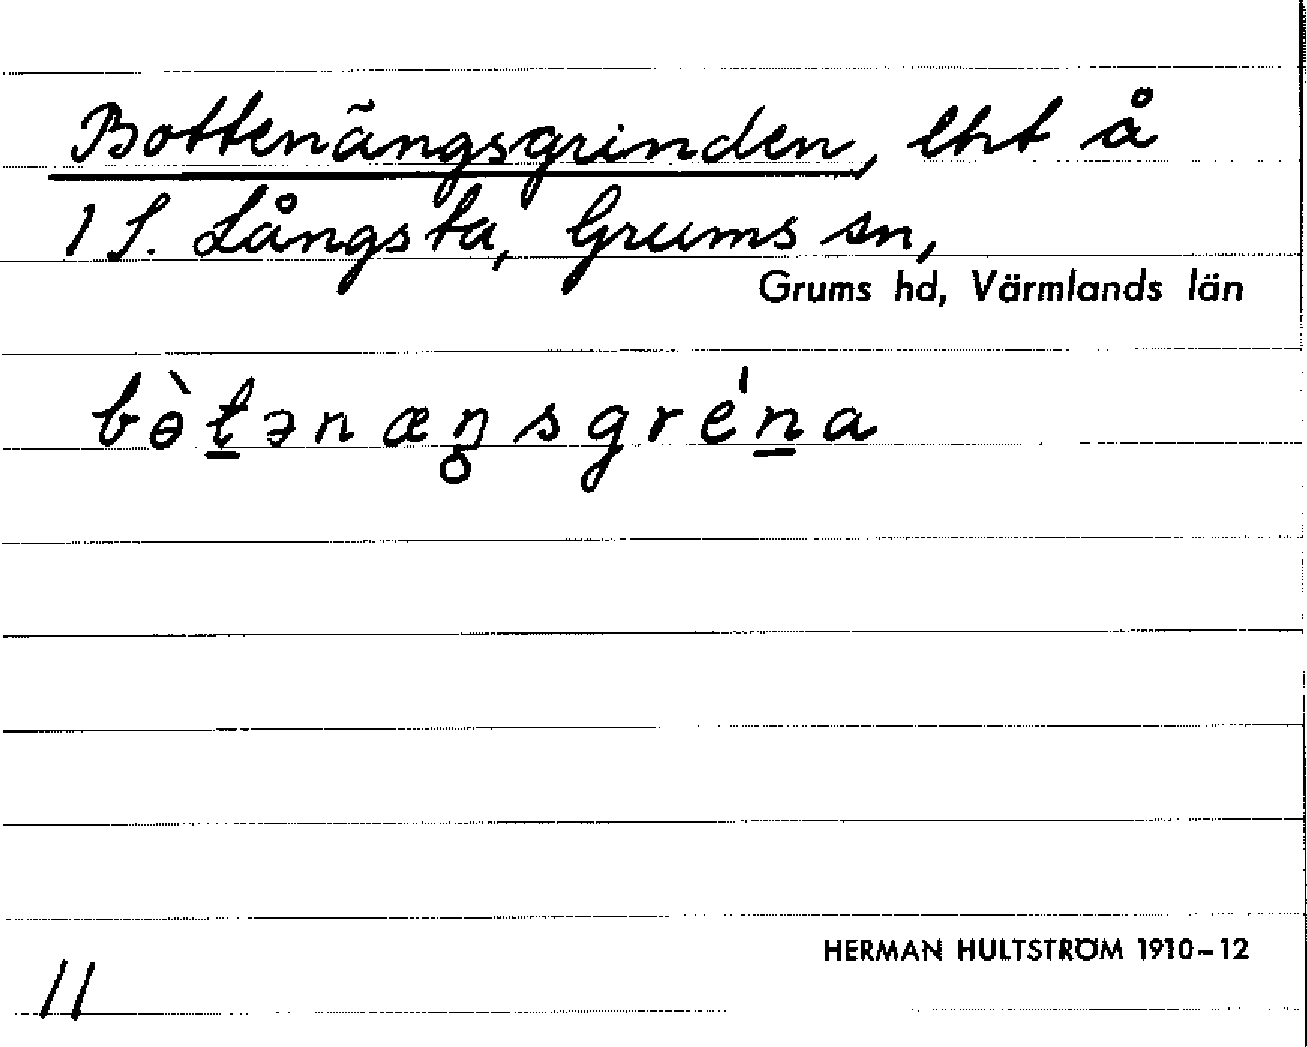 Bottenängsgrinden, lht å
1 S. Långsta, Grums sn,
Grums hd, Värmlands län
bɵ̀t̲ənæŋ̥sgrén̲a
HERMAN HULTSTRÖM 1910–12
11